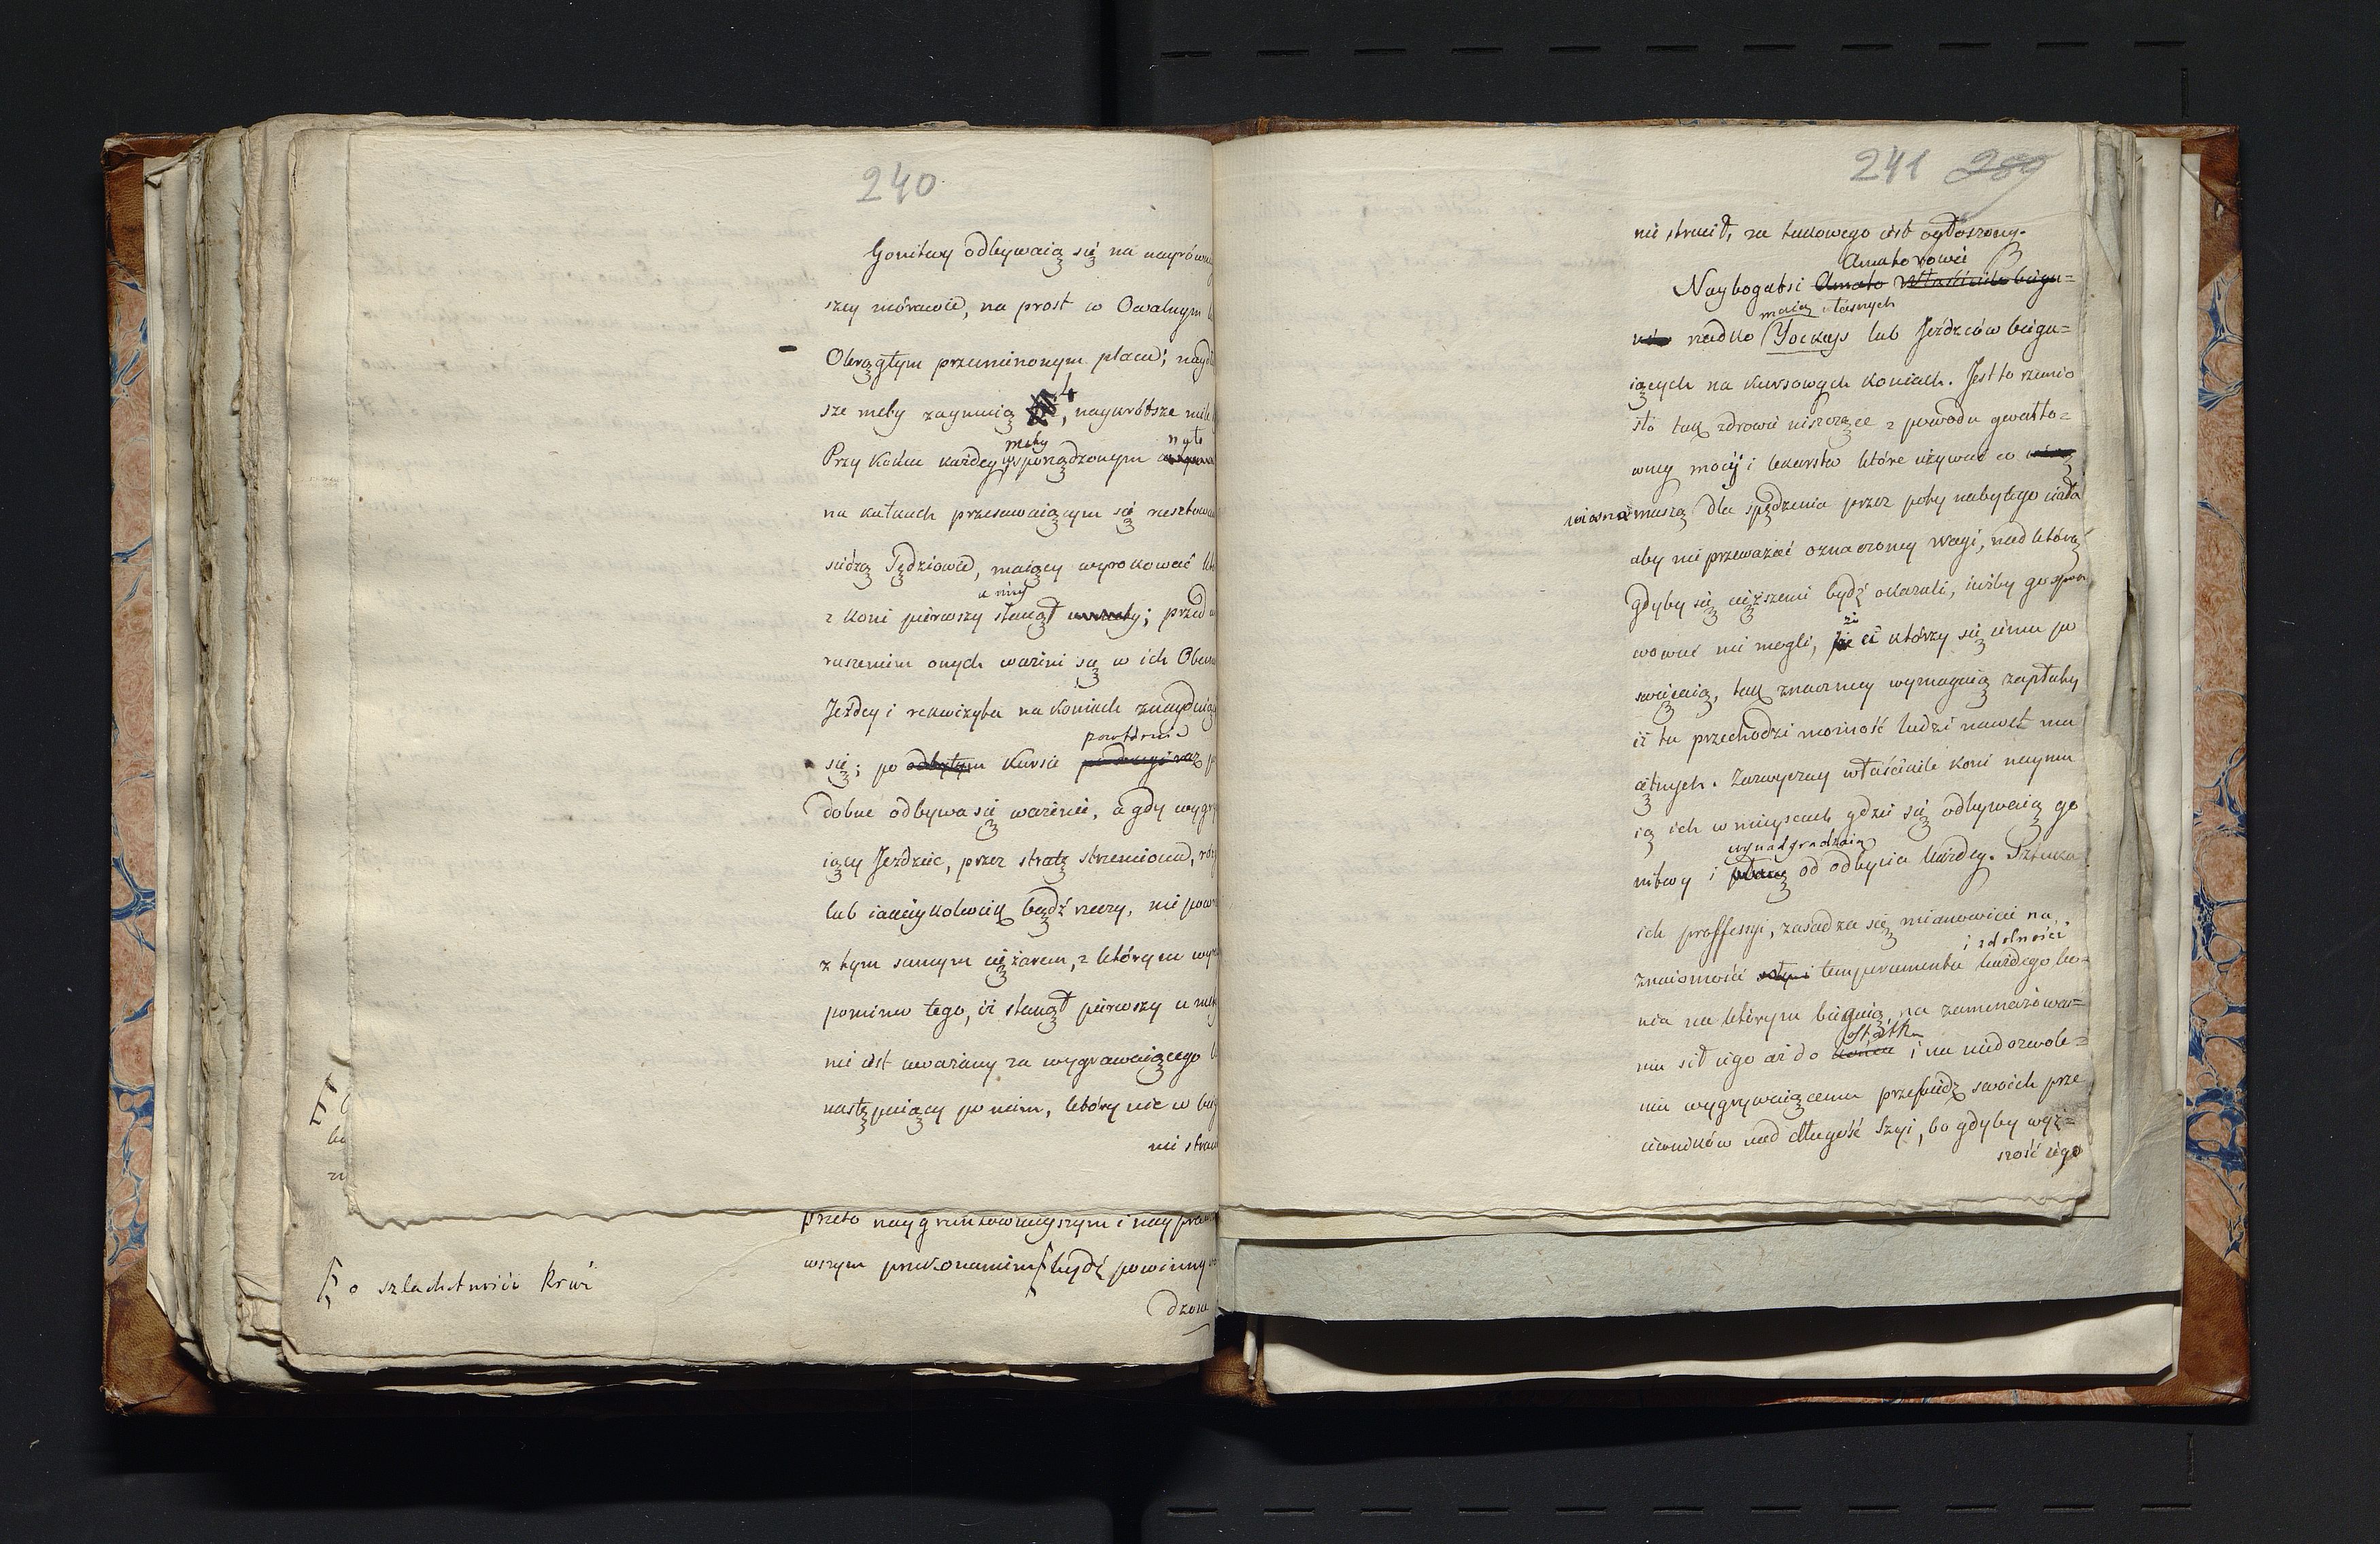 240
Gonitwy odbywaią się na nayrówn
szey mórawie, na prost w Owalnym
Okrągłym przeminonym placu; nayd
sze mety zaymuią 4, naykrótsze mile
mety
Przy końcu każdey, sporządzonym
na kułkach przesuwaiącym się rusztowa
siedzą Sędziowie, maiący wyrokować kto
u niey
z koni pierwszy stanął u mety; przed
ruszeniem onych ważeni są w ich Obecn
Jeźdcy i rekwizyta na koniach znayduią
powtórnie
się; po odbytym kursie po drugi raz p
dobne odbywa się ważenie, a gdy wygry
iący Jeździec, przez stratę strzemiona,
lub iakieykolwiek bądź rzeczy, nie powr
z tym samym ciężarem, z którym wy
pomimo tego, iż stanął pierwszy u mety
nie iest uważany za wygrawaiącego
następuiący po nim, który nic w bieg
nie strac
przeto naygruntownieyszym i nay
wszym przekonaniem być powinny
dzone
o szlachetności krwi
241
nie stracił, za takowego iest ogłoszony.
Amatorowie
Naybogatsi Amato Właściciele biegu=
maią własnych
rzadko Jockeys lub Jeźdzców biega=
iących na kursowych koniach. Jest to rzemio
sło tak zdrowie niszczące z powodu gwałto=
wney mocy i lekarstw które używać co
wiosna muszą dla spędzenia przez poty nabytego ciała
aby nie przeważać oznaczoney wagi, nad którą
gdyby się cięższemi bydź okazali, iużby go spra
że
wować nie mogli, że ci którzy się iemu po
swięcaią, tak znaczney wymagaią zapłaty
iż ta przechodzi możność ludzi nawet ma
iętnych. Zazwyczay właściciele koni naymu
ią ich w mieyscach gdzie się odbywaią go
wynadgradzaią
nitwy i płacą od odbycia każdey. Sztuka
ich proffessyi, zasadza się mianowicie na
i zdolności
znaiomości temperamentu każdego ko=
nia na którym biegaią, na zamenażowa=
ostatka
niu sił iego aż do końca i na niedozwole=
niu wygrywaiącemu przesiądz swoich prze
ciwników nad długość szyi, bo gdyby wyż=
szość iego